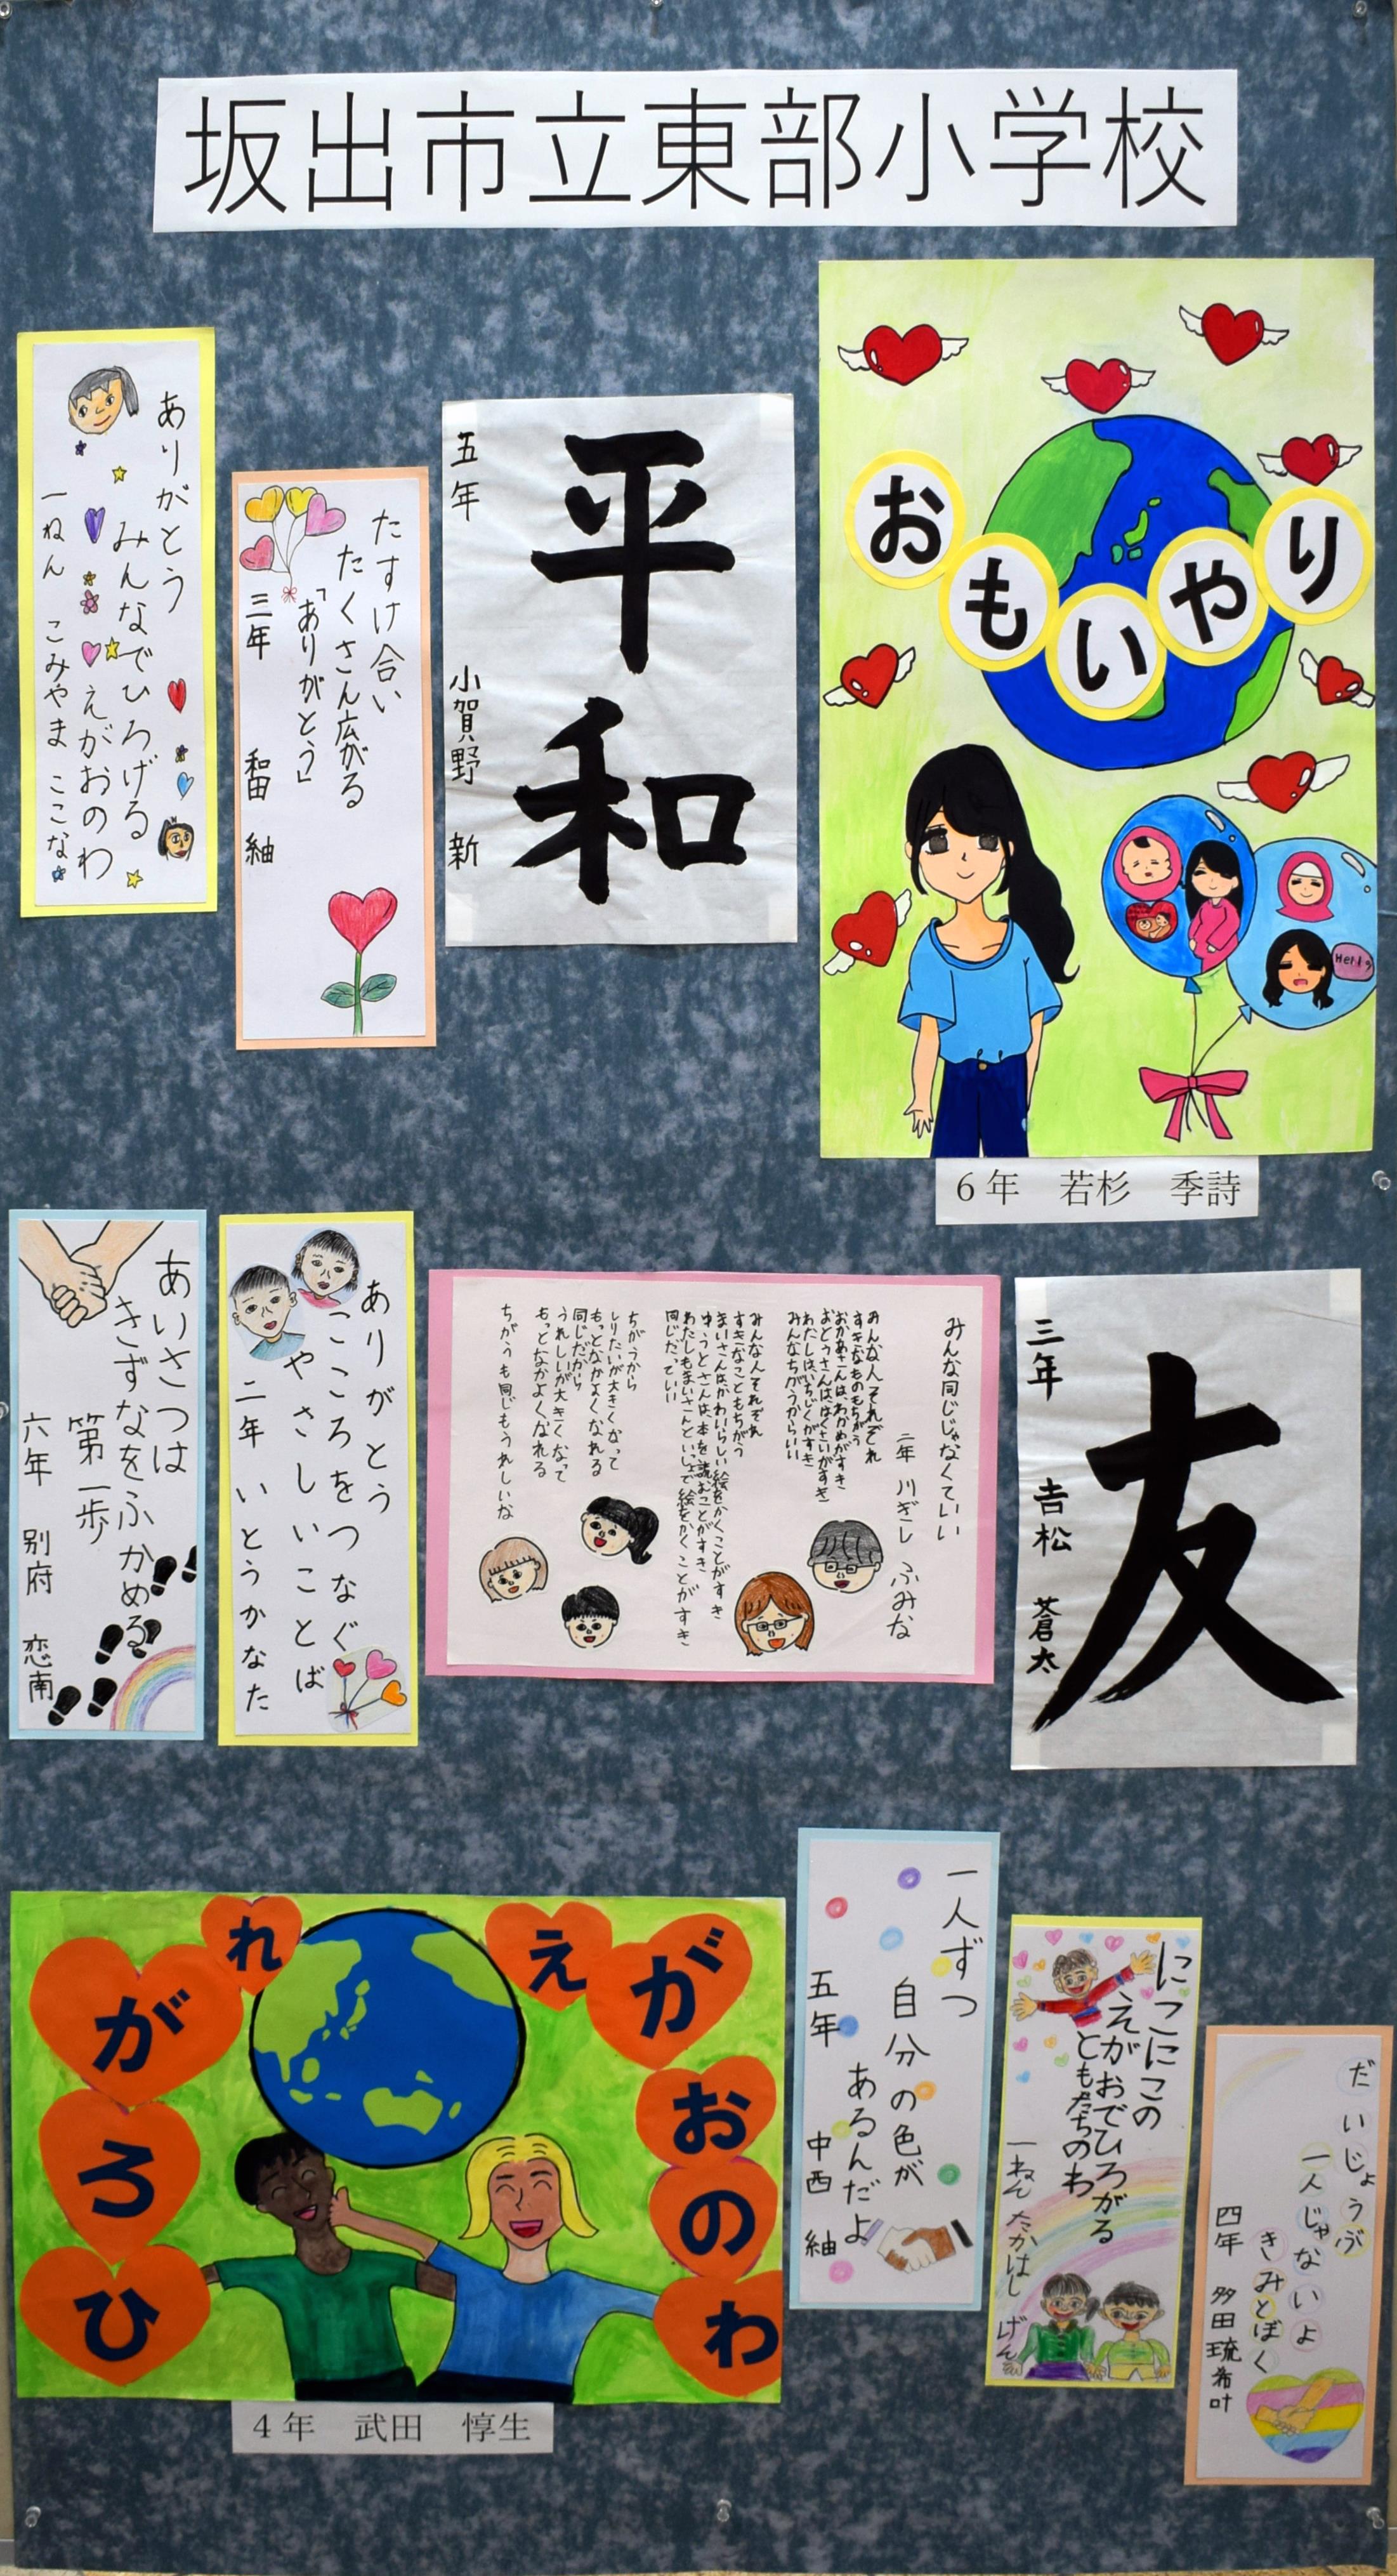 坂出市立東部小学校
ありがとう
みんなでひろげる
えがおのわ
一ねん こみやま ここな
たすけ合い
たくさん広がる
「ありがとう」
三年 和田 紬
平和
五年 小賀野 新
おもいやり
Hello
6年 若杉 季詩
あいさつは
きずなをふかめる
第一歩
六年 別府 恋南
ありがとう
こころをつなぐ
やさしいことば
二年 いとうかなた
みんな同じじゃなくていい
二年 川ぎし ふみな
みんな人それぞれ
すきなものもちがう
おかあさんは、わかめがすき
おとうさんは、はくさいがすき
わたしは、いちじくがすき
みんなちがうからいい
みんな人それぞれ
すきなこともちがう
まいさんは、かわいらしい絵をかくことがすき
ゆうとさんは、本を読むことがすき
わたしもまいさんといっしょで絵をかくことがすき
同じだっていい
ちがうから
しりたいが大きくなって
もっとなかよくなれる
同じだから
うれしいが大きくなって
もっとなかよくなれる
ちがうも同じもうれしいな
友
三年 吉松 蒼太
えがおのわ
ひろがれ
4年 武田 惇生
一人ずつ
自分の色が
あるんだよ
五年 中西 紬
にこにこの
えがおでひろがる
ともだちのわ
一ねん たかはし げん
だいじょうぶ
一人じゃないよ
きみとぼく
四年 多田琉希叶